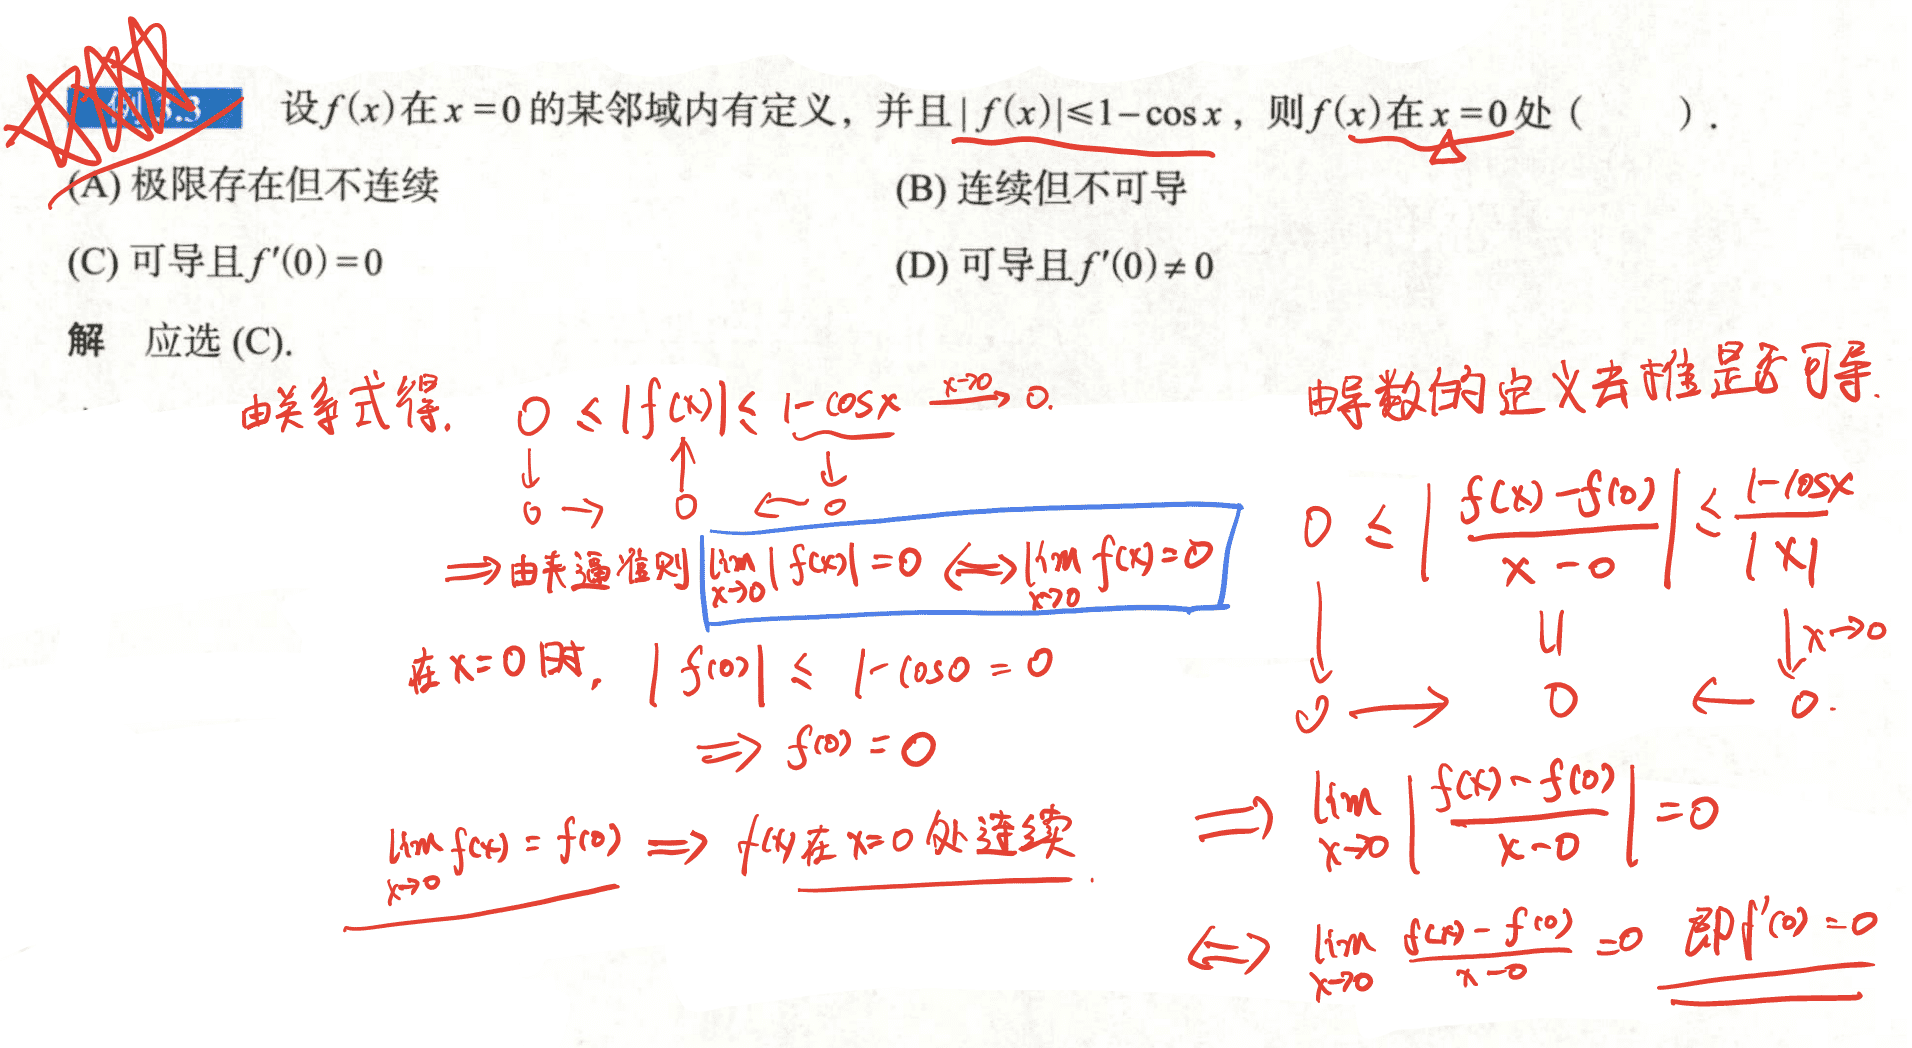 例3.3 设f(x)在x=0的某邻域内有定义，并且|f(x)|≤1-cosx，则f(x)在x=0处（ ）.
(A) 极限存在但不连续 (B) 连续但不可导
(C) 可导且f′(0)=0 (D) 可导且f′(0)≠0
解 应选 (C).
由关系式得. 0 ≤ |f(x)| ≤ 1-cosx →(x→0) 0.
↓ ↑ ↓
0 → 0 ← 0
⇒ 由夹逼准则 lim_{x→0} |f(x)| = 0 ⟺ lim_{x→0} f(x) = 0
在 x=0 时, |f(0)| ≤ 1-cos0 = 0
⇒ f(0) = 0
lim_{x→0} f(x) = f(0) ⇒ f(x) 在 x=0 处连续.
由导数的定义去推是否可导.
0 ≤ |(f(x)-f(0))/(x-0)| ≤ (1-cosx)/|x|
↓ || ↓ x→0
0 → 0 ← 0.
⇒ lim_{x→0} |(f(x)-f(0))/(x-0)| = 0
⟺ lim_{x→0} (f(x)-f(0))/(x-0) = 0 即 f′(0) = 0